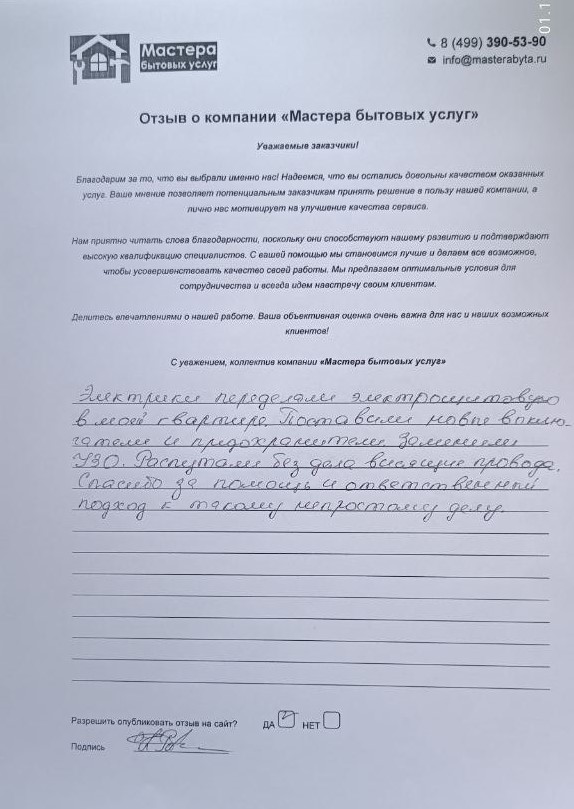 01.1
Мастера
бытовых услуг
8 (499) 390-53-90
info@masterabyta.ru
Отзыв о компании «Мастера бытовых услуг»
Уважаемые заказчики!
Благодарим за то, что вы выбрали именно нас! Надеемся, что вы остались довольны качеством оказанных
услуг. Ваше мнение позволяет потенциальным заказчикам принять решение в пользу нашей компании, а
лично нас мотивирует на улучшение качества сервиса.
Нам приятно читать слова благодарности, поскольку они способствуют нашему развитию и подтверждают
высокую квалификацию специалистов. С вашей помощью мы становимся лучше и делаем все возможное,
чтобы усовершенствовать качество своей работы. Мы предлагаем оптимальные условия для
сотрудничества и всегда идем навстречу своим клиентам.
Делитесь впечатлениями о нашей работе. Ваша объективная оценка очень важна для нас и наших возможных
клиентов!
С уважением, коллектив компании «Мастера бытовых услуг»
Электрики переделали электрощитовую
в моей квартире. Поставили новые вклю-
чатели и предохранители. Заменили
УЗО. Распутали без дела висящие провода.
Спасибо за помощь и ответственный
подход к такому непростому делу.
Разрешить опубликовать отзыв на сайт? ДА НЕТ
Подпись